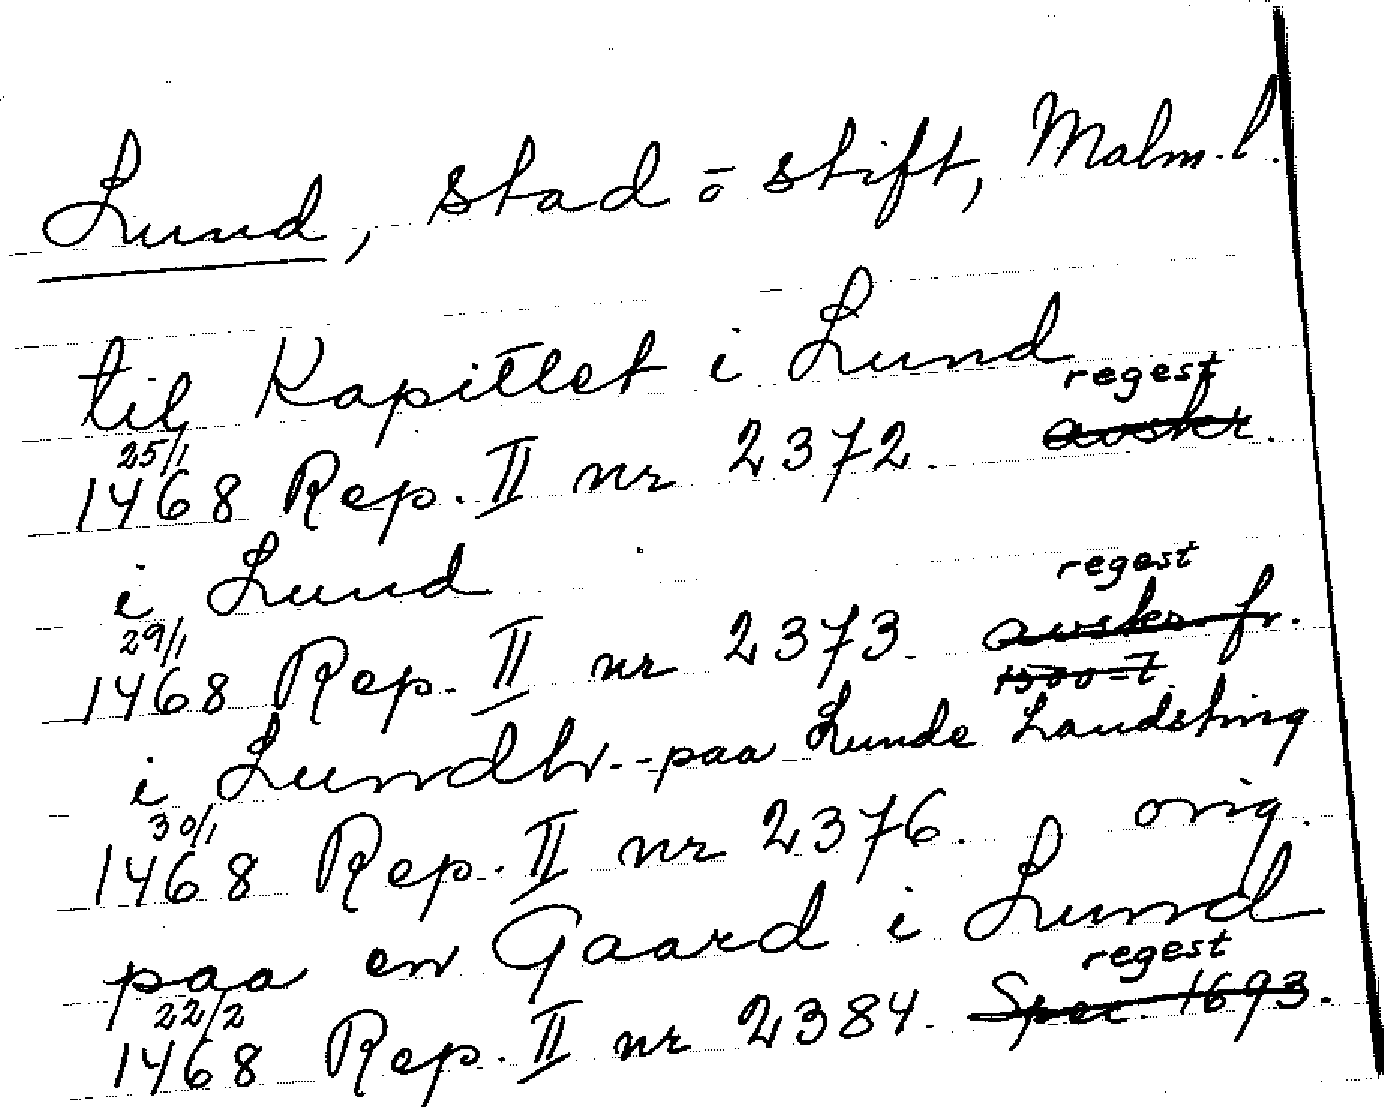 Lund, stad ō stift, Malm.l.
til Kapitlet i Lund
regest
25/1
1468 Rep. II nr 2372. avskr.
i Lund
regest
29/1
1468 Rep. II nr 2373. avskr. fr.
1500-t.
i Lundh.--paa Lunde Landsting
30/1
1468 Rep. II nr 2376. orig.
paa en Gaard i Lund
regest
22/2
1468 Rep. II nr 2384. Spec. 1693.